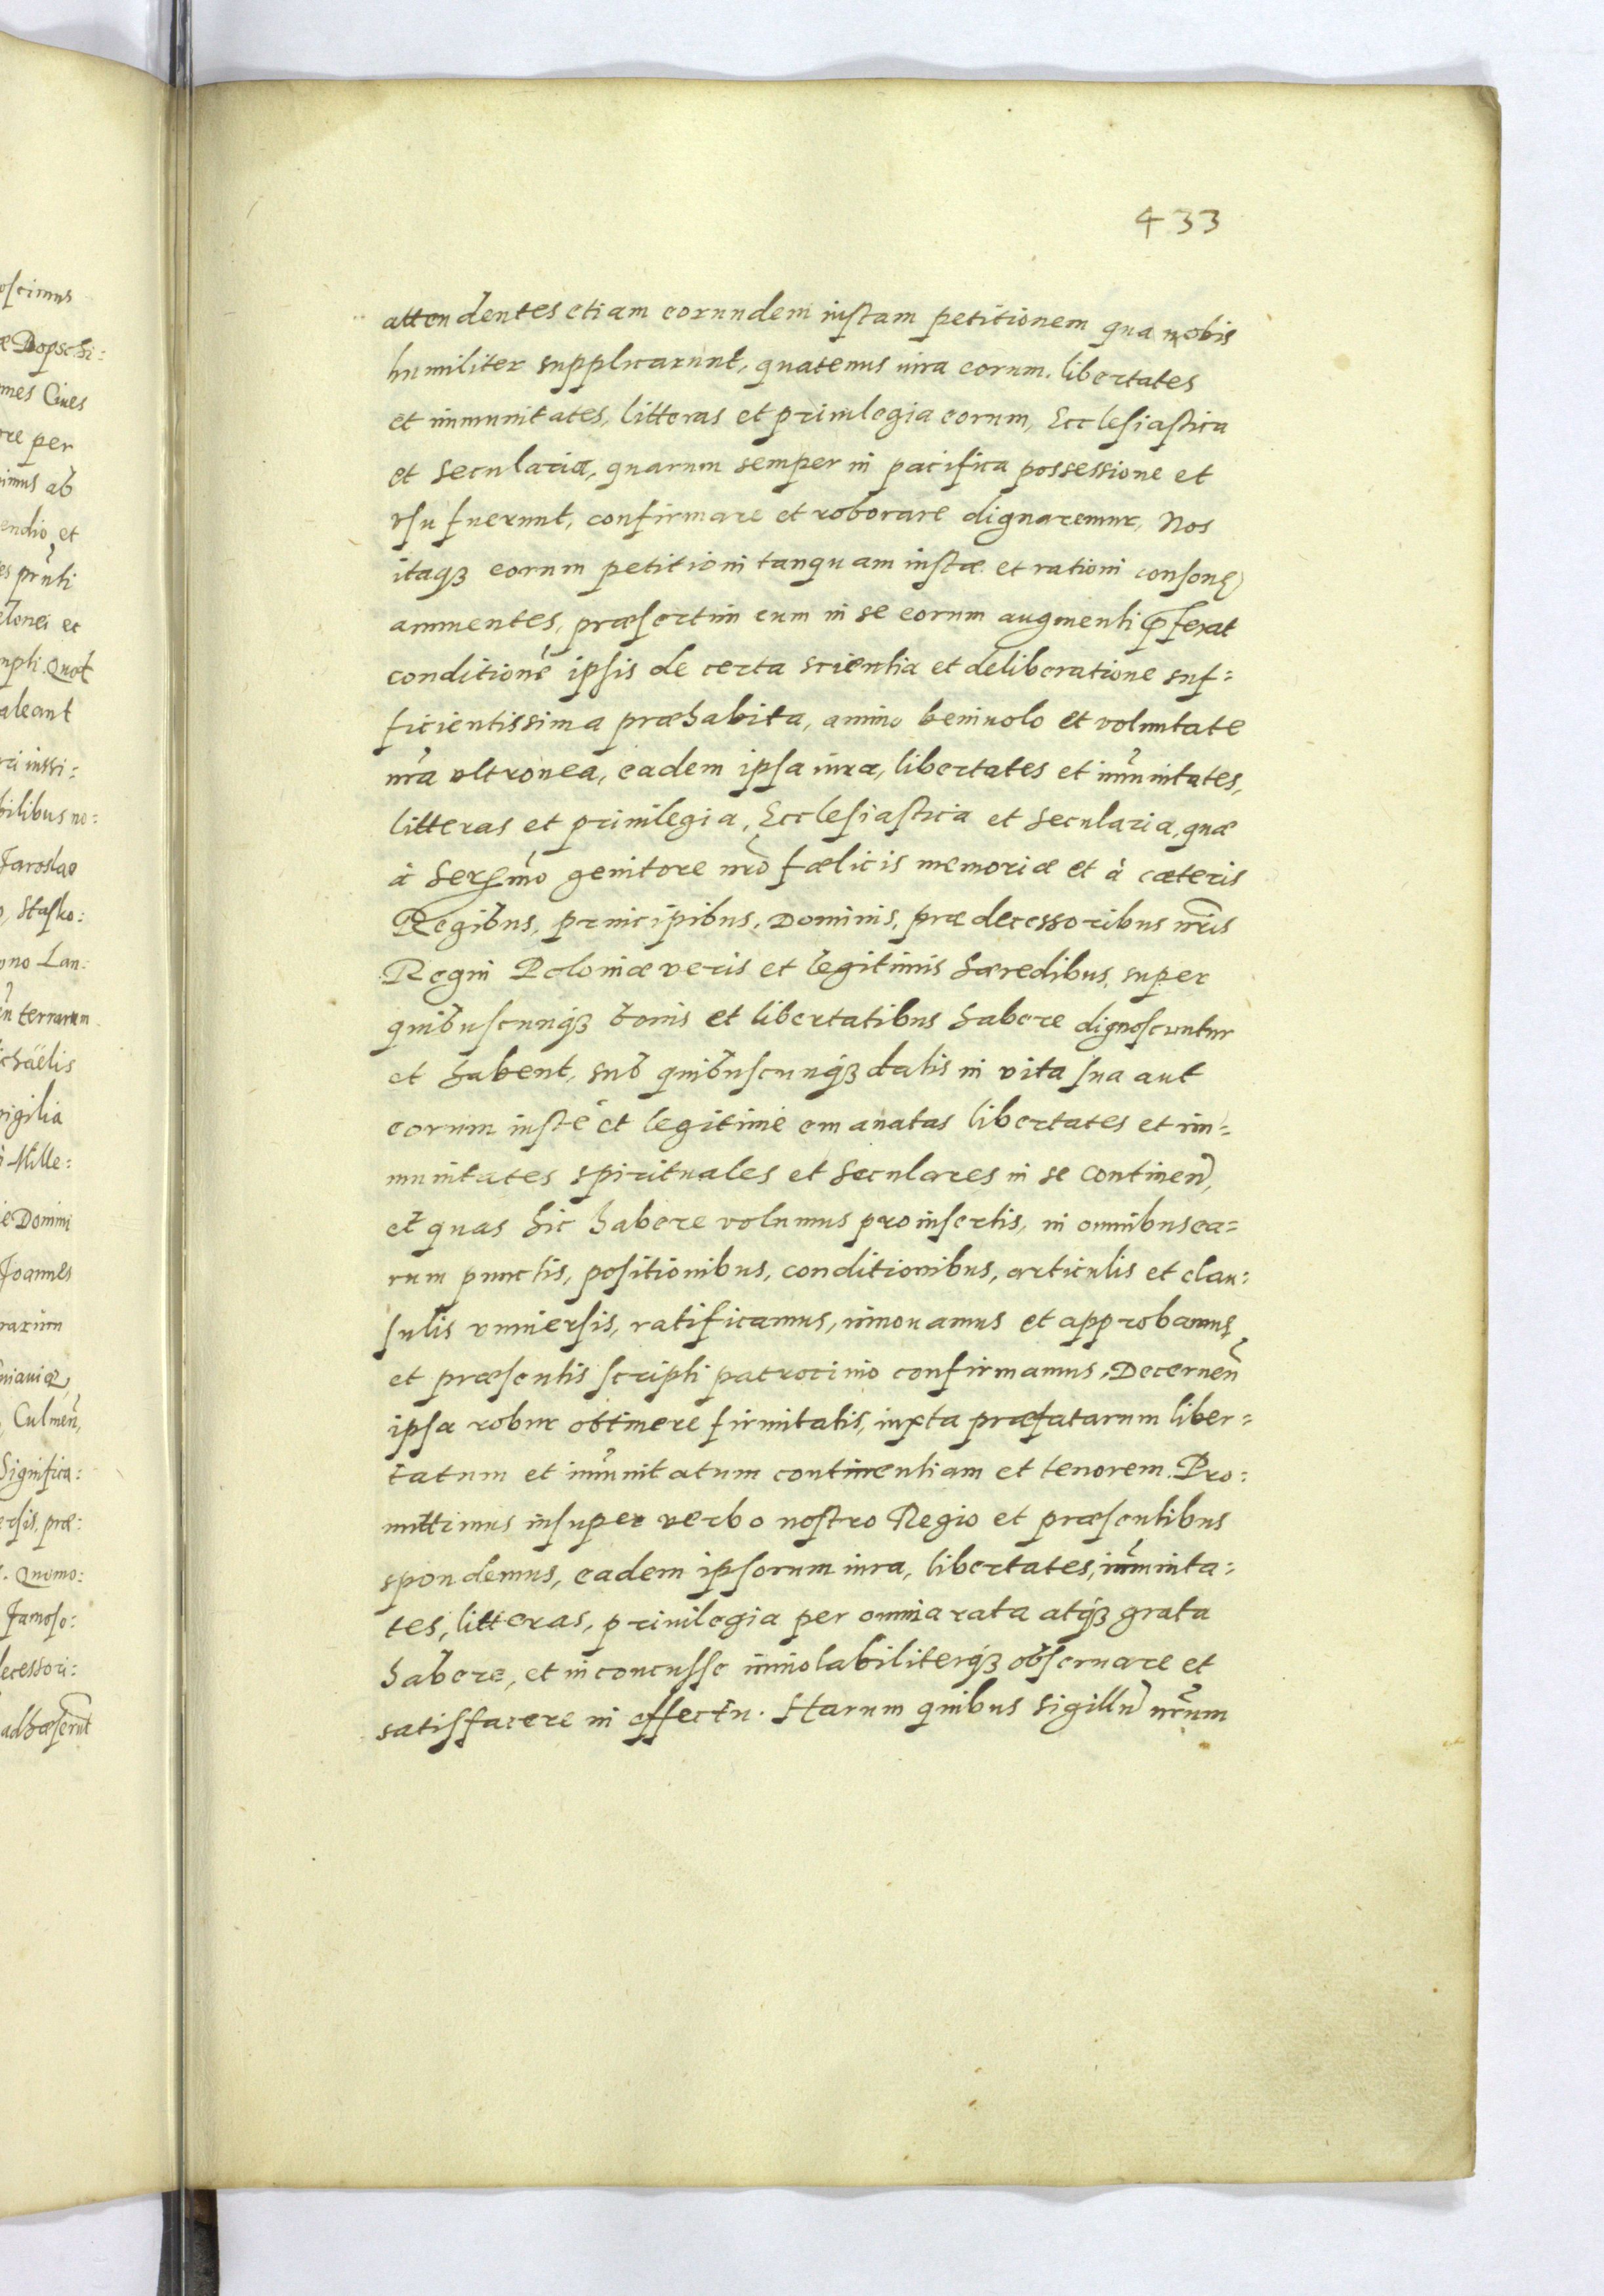 433
attendentes etiam eorundem iustam petitionem qua nobis
humiliter supplicarunt, quatenus iura eorum, libertates
et immunitates, litteras et priuilegia eorum, Ecclesiastica
et secularia, quarum semper in pacifica possessione et
vsu fuerunt, confirmare et roborare dignaremur, Nos
itaqꝫ eorum petitioni tanquam iustæ et rationi consonę
annuentes, præsertim cum in se eorum augmenti ꝓferat
conditionē ipsis de certa scientia et deliberatione suf=
ficientissima præhabita, animo beniuolo et voluntate
nr̃a vltronea, eadem ipsa iura, libertates et im̃unitates,
litteras et priuilegia, Ecclesiastica et secularia, quæ
à Serẽmo genitore nr̃o fælicis memoriæ et à cæteris
Regibus, principibus, Dominis, prædecessoribus nr̃is
Regni Poloniæ veris et legitimis hæredibus, super
quibuscunqꝫ bonis et libertatibus habere dignoscuntur
et habent, sub quibuscunqꝫ datis in vita sua aut
eorum iustè et legitimè emanatas libertates et im=
munitates spirituales et seculares in se continen̄,
et quas hic habere volumus pro insertis, in omnibus ea=
rum punctis, positionibus, conditionibus, articulis et clau=
sulis vniuersis, ratificamus, innouamus et approbamus
et præsentis scripti patrocinio confirmamus, Decernen̄
ipsa robur obtinere firmitatis, iuxta præfatarum liber=
tatum et im̃unitatum continentiam et tenorem. Pro=
mittimus insuper verbo nostro Regio et præsentibus
spondemus, eadem ipsorum iura, libertates, im̃unita=
tes, litteras, priuilegia per omnia rata atqꝫ grata
habere, et inconcusse inuiolabiliterqꝫ obseruare et
satisfacere in effectu. Harum quibus sigillū nr̃um
oscimus
æ Dopschi:
mes Ciues
re per
imus ab
endio, et
aleant
bilibus no:
Jaroslao
Stasko:
no Lan:
terrarum
chäelis
vigilia
Mille:
Domini
Joannes
Culmen̄,
Significa:
ersis, præ:
Quomo:
Famoso:
decessori:
adhæserūt